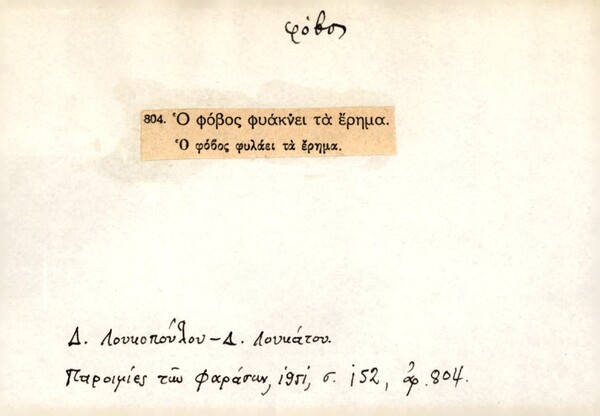 φόβος
804. Ὁ φόβος φυάκνει τὰ ἔρημα.
Ὁ φόβος φυλάει τὰ ἔρημα.
Δ. Λουκοπούλου - Δ. Λουκάτου.
Παροιμίες τῶν Φαράσων, 1951, σ. 152, ἀρ. 804.